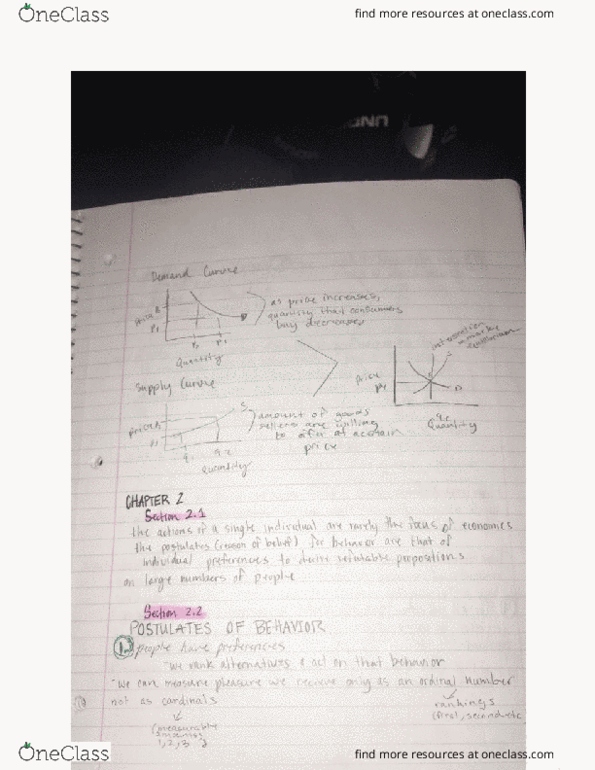 OneClass
find more resources at oneclass.com
Demand Curve
as price increases,
quantity that consumers
buy decreases
Price
P1
D
Quantity
intersection
equilibrium
S
Supply Curve
price
P1
D
qe
Quantity
S
amount of goods
sellers are willing
to offer at a certain
price
Price
P1
q1 q2
Quantity
CHAPTER 2
Section 2.1
the actions of a single individual are rarely the focus of economics
the postulates (reason of belief) for behavior are that of
individual preferences to derive refutable propositions
on large numbers of people
Section 2.2
POSTULATES OF BEHAVIOR
1. people have preferences
we rank alternatives & act on that behavior
we can measure pleasure we recieve only as an ordinal number
not as cardinals
rankings
(first, second etc
(measurable
1, 2, 3
OneClass
find more resources at oneclass.com